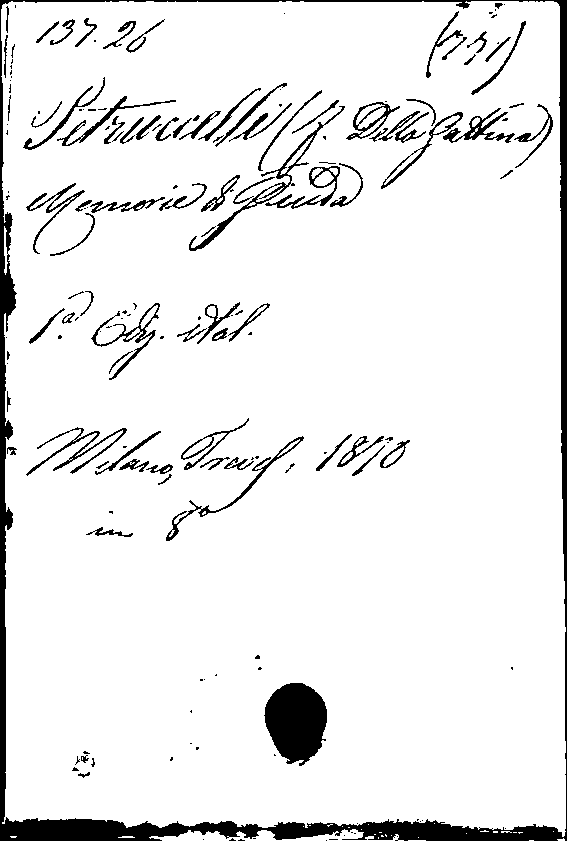 137.26 (771)
Petruccelli (F. Della Gattina)
Memorie di Giuda
1ª. Ediz. ital.
Milano, Treves, 1870
in 8°